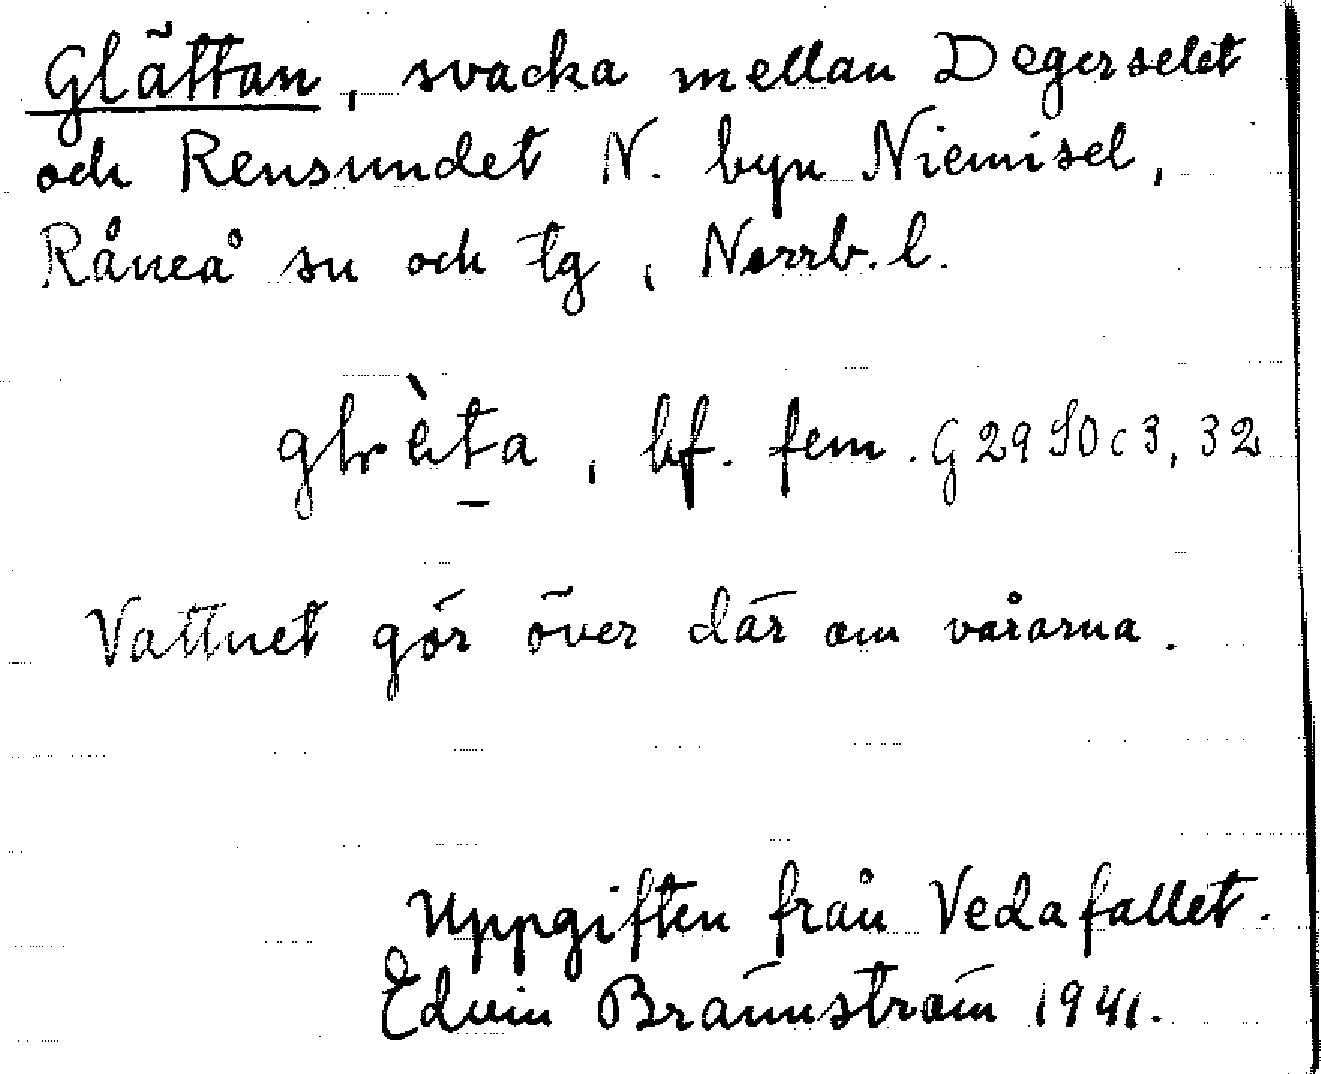 Glättan, svacka mellan Degerselet
och Rensundet N. byn Niemisel,
Råneå sn och tg, Norrb. l.
bf. fem. G 29 SO c 3, 32
Vattnet gör över där om vårarna.
Uppgiften från Vedafallet.
Edvin Brännström 1941.